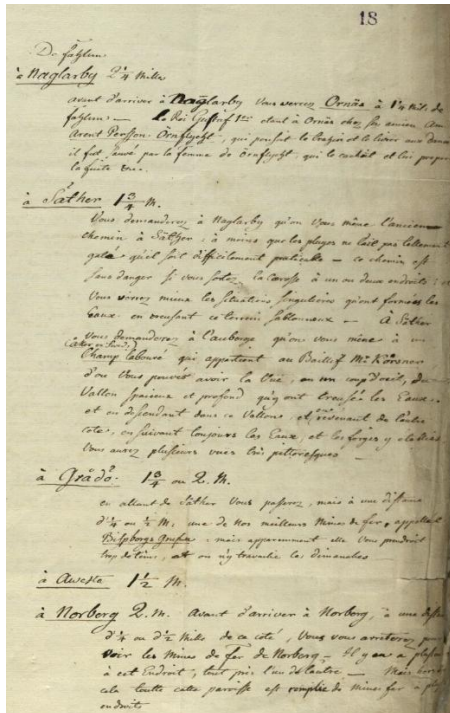 18
De fahlun
à Naglarby 2 1/4 Mille
avant d'arriver à Naglarby vous verrez Ornäs à 1 1/4 Mil. de
fahlun — Le Roi Gustaf 1er etant à Ornäs chez son ancien Ami
Arent Persson Örnflycht, qui pensoit le et le livrer aux
il fut sauvé par la femme de Örnflycht, qui le cachoit et lui
la fuite
à Säther 1 3/4 M.
Vous demanderez à Naglarby qu'on vous mène l'ancien
chemin à Säther, à moins que les pluyes ne l'ait pas tellement
gaté qu'il soit difficilement praticable — ce chemin est
sans danger si vous sortez la Carosse à un ou deux endroits: et
Vous verrez mieux les situations singuliers qu'ont formées les
Eaux en creusant ce terrein sablonneux — A Säther
vous demanderez à l'auberge qu'on vous mène à un
Champ labouré qui appartient au Baillif Mr
d'ou Vous pouvés avoir la Vue, en un coup d'oeil, du
Vallon spacieux et profond qu'y ont creusée les Eaux —
et en descendant dans ce Vallon, et revenant de l'autre
coté, en suivant toujours les Eaux, et les forges y etablies
Vous aurez plusieurs vues très pittoresques —
à Grådö. 1 3/4 ou 2. M.
en allant de Säther Vous passerez, mais à une distance
d'1/4 ou 1/2 M. une de nos meilleurs Mines de fer, appellée
Bispbergs Grufva: mais apparemment elle vous prendroit
trop de tems, et on n'y travaille les dimanches
à Awesta 1 1/2 M.
à Norberg 2. M. Avant d'arriver à Norberg, à une distance
d'1/4 ou d'1/2 Mille de ce coté, Vous vous arreterez pour
voir les Mines de fer de Norberg — Il y en a plusieurs
à cet Endroit, tout près l'un de l'autre — Mais
cela toutte cette parroisse est remplie de mines fer a plusieurs
endroits